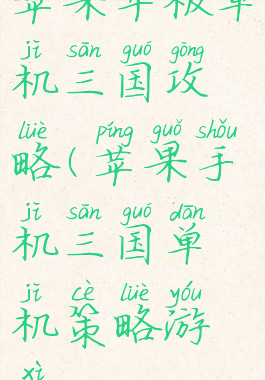 苹果单板单
jī sān guó gōng
机三国攻
lüè píng guǒ shǒu
略(苹果手
jī sān guó dān
机三国单
jī cè lüè yóu
机策略游
xì